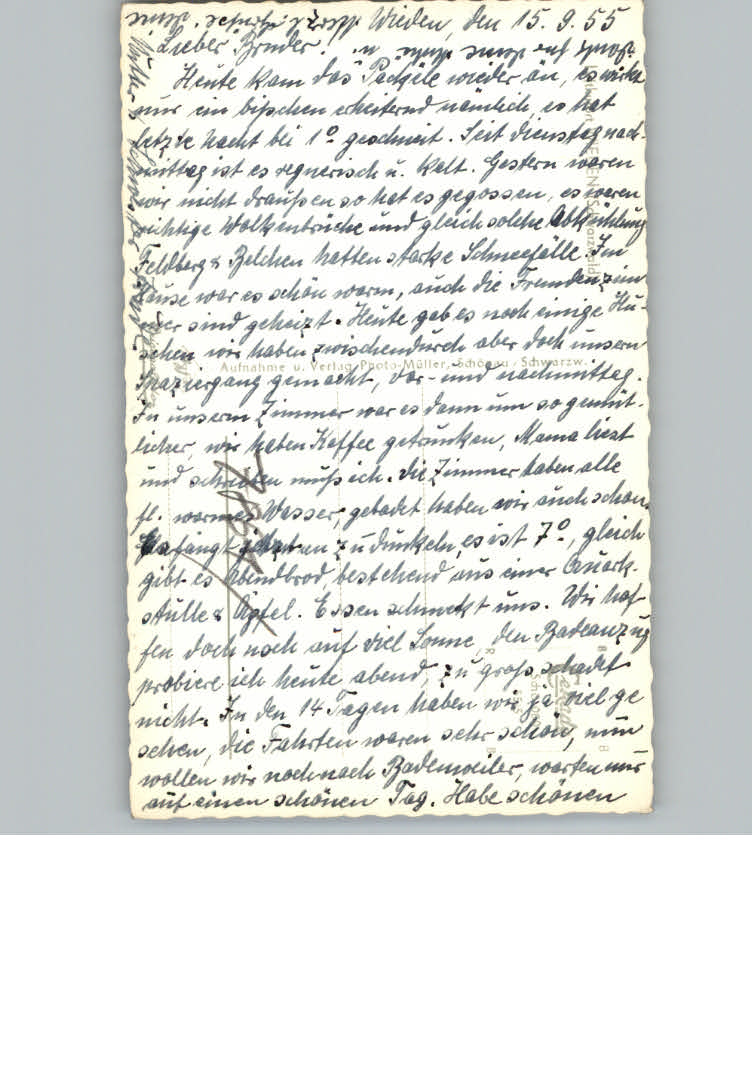 Wieden, den 15. 9. 55
Lieber Bruder!
Heute kam das Päckele wieder an, es wirkt
nur ein bißchen erheiternd nämlich es hat
letzte Nacht bei 1° geschneit. Seit Dienstag nach-
mittag ist es regnerisch u. kalt. Gestern waren
wir nicht draußen so hat es gegossen, es waren
richtige Wolkenbrüche und gleich solche Abkühlung
Feldberg & Belchen hatten starke Schneefälle. Im
Hause war es schön warm, auch die Fremdenzim-
mer sind geheizt. Heute gab es noch einige Hu-
schen wir haben zwischendurch aber doch unsern
Aufnahme u. Verlag Photo-Müller, Schönau / Schwarzw.
Spaziergang gemacht, vor- und nachmittag.
In unserm Zimmer war es dann um so gemüt-
licher, wir haben Kaffee getrunken, Mama liest
und schreiben muß ich. Die Zimmer haben alle
fl. warmes Wasser, gebadet haben wir auch schon.
Es fängt an zu dunkeln, es ist 7°, gleich
gibt es Abendbrod, bestehend aus einer Quark-
stulle & Äpfel. Essen schmeckt uns. Wir hof-
fen doch noch auf viel Sonne, den Badeanzug
probiere ich heute abend, zu groß schadet
nicht. In den 14 Tagen haben wir ja viel ge
sehen, die Fahrten waren sehr schön, nun
wollen wir noch nach Badenweiler, warten nur
auf einen schönen Tag. Habe schönen